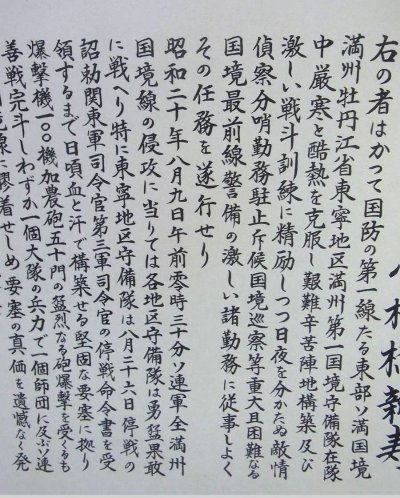 新寿
右の者はかつて国防の第一線たる東部ソ満国境
満州牡丹江省東寧地区満州第一国境守備隊在隊
中 厳寒と酷熱を克服し艱難辛苦陣地構築及び
激しい戦斗訓練に精励しつつ日夜を分かたぬ敵情
偵察分哨勤務駐止斥候国境巡察等重大且困難なる
国境最前線警備の激しい諸勤務に従事しよく
その任務を遂行せり
昭和二十年八月九日午前零時三十分ソ連軍全満州
国境線の侵攻に当りては各地区守備隊は勇猛果敢
に戦へり特に東寧地区守備隊は八月二十六日停戦の
詔勅関東軍司令官第三軍司令官の停戦命令書を受
領するまで日頃血と汗で構築せる堅固な要塞に拠り
爆撃機一〇〇機加農砲五十門の猛烈なる砲爆撃を受くるも
善戦完斗しわずか一個大隊の兵力で一個師団に及ぶソ連
膠着せしめ要塞の真価を遺憾なく発